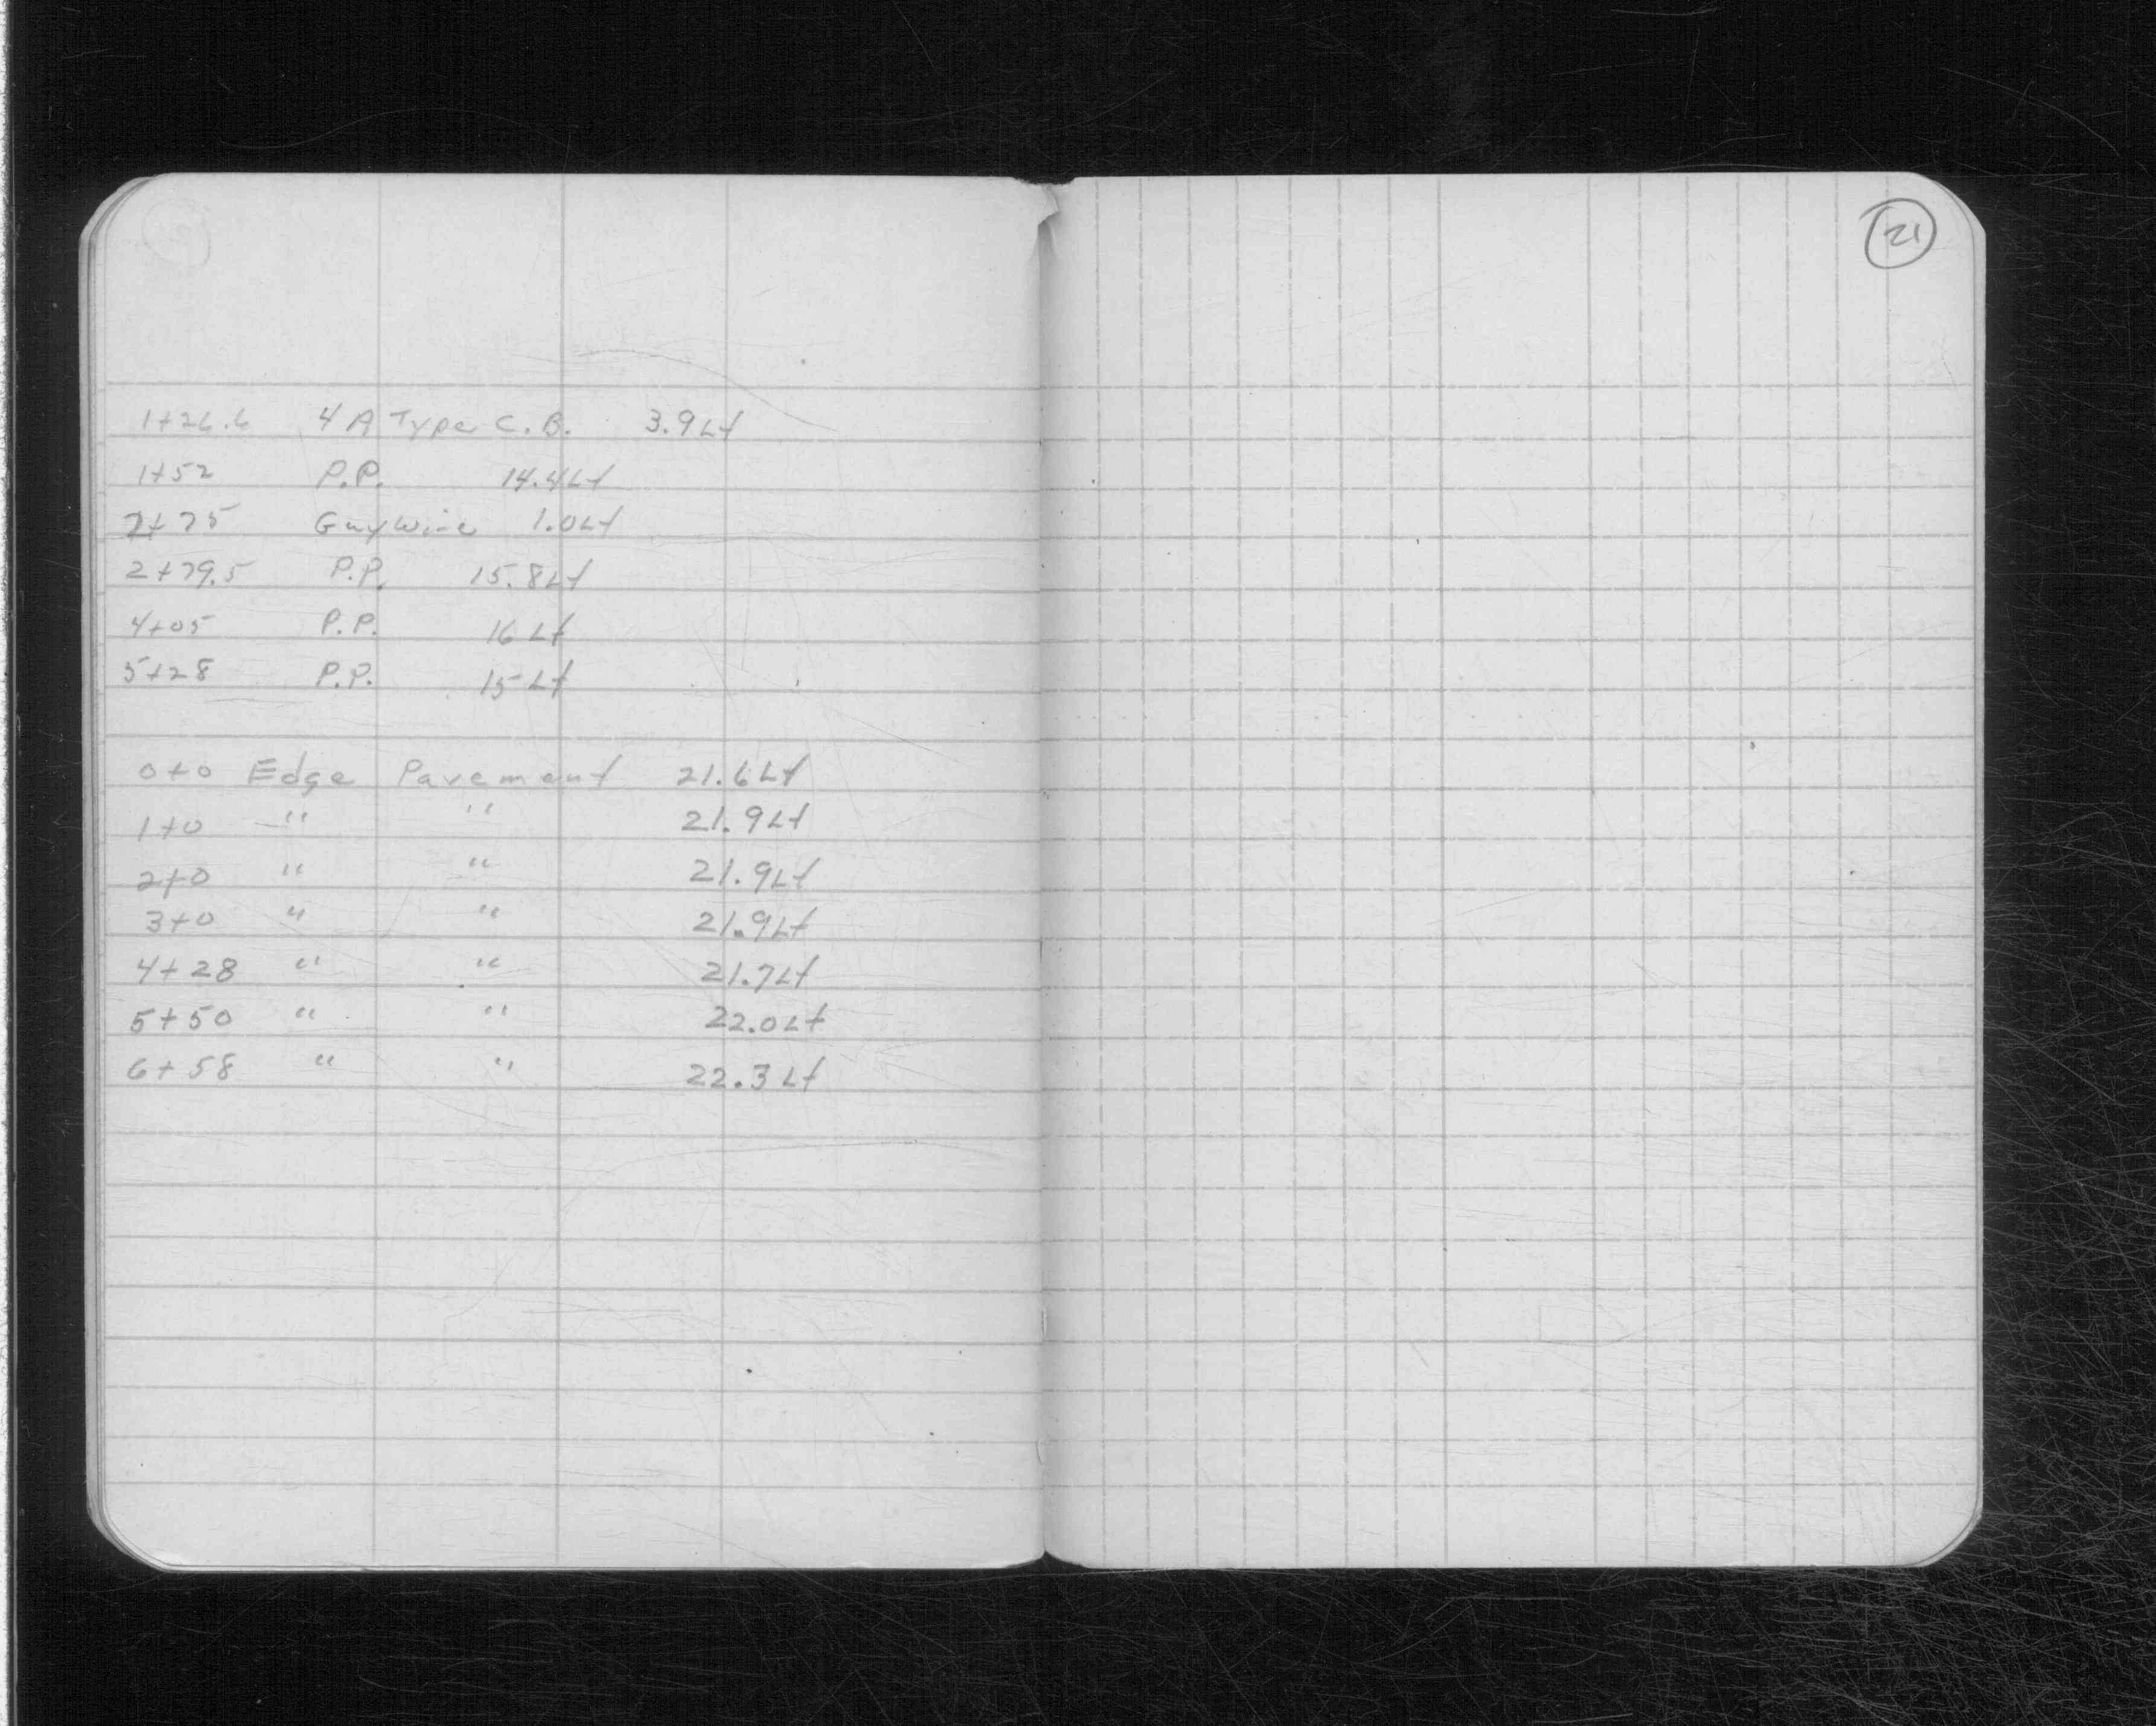 21
1+26.6 4 A Type C.B. 3.9 Lt
1+52 P.P. 14.4 Lt
2+75 Guy Wire 1.0 Lt
2+79.5 P.P. 15.8 Lt
4+05 P.P. 16 Lt
5+28 P.P. 15 Lt
0+0 Edge Pavement 21.6 Lt
1+0 " " 21.9 Lt
2+0 " " 21.9 Lt
3+0 " " 21.9 Lt
4+28 " " 21.7 Lt
5+50 " " 22.0 Lt
6+58 " " 22.3 Lt